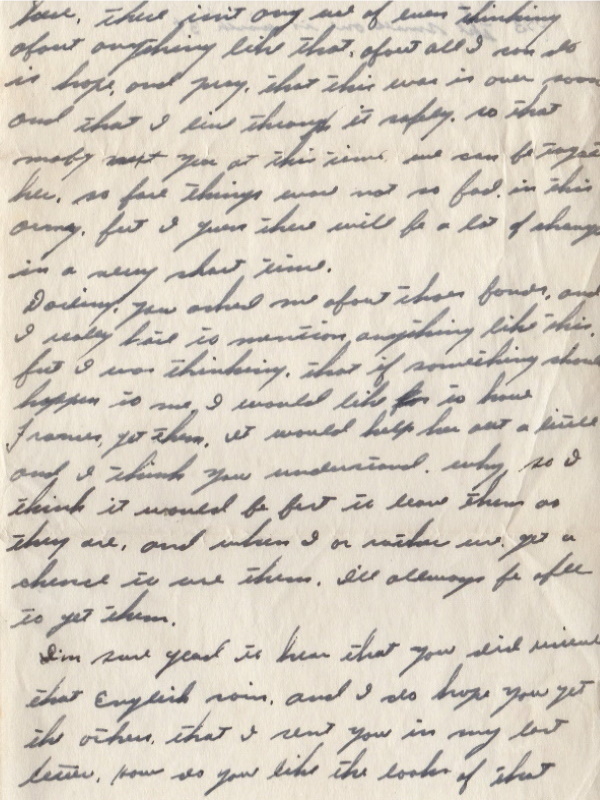 there isn't any use of even thinking
about anything like that. about all I can do
is hope, and pray, that this war is over soon
and that I live through it safely. so that
maby next year at this time we can be togat
her. so fare things ware not so bad. in this
army. but I guess there will be a lot of change
in a very short time.
Darling, you asked me about thoes bonds, and
I really hate to mention anything like this.
but I was thinking, that if something should
happen to me, I would like to have
Frances, get them. it would help her out a little
and I think you understand. why, so I
think it would be best to leave them as
they are, and when I or rather we, get a
chance to use them. I'll allways be able
to get them.
I'm sure glad to hear that you did
that English coin. and I do hope you get
the others, that I sent you in my last
letter. how do you like the looks of that